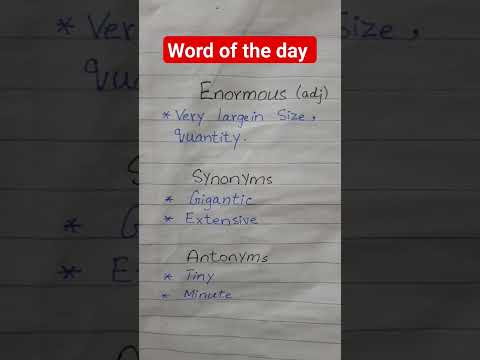 Word of the day
Enormous (adj)
* Very large in Size,
quantity.
Synonyms
* Gigantic
* Extensive
Antonyms
* Tiny
* Minute